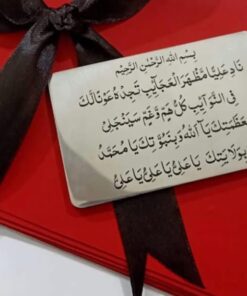 بِسْمِ اللهِ الرَّحْمٰنِ الرَّحِيْمِ
نَادِ عَلِيًّا مَظْهَرَ الْعَجَآئِبِ تَجِدْهُ عَوْنًا لَكَ
فِى النَّوَآئِبِ كُلُّ هَمٍّ وَّغَمٍّ سَيَنْجَلِىْ
بِعَظَمَتِكَ يَا اَللهُ وَبِنُبُوَّتِكَ يَا مُحَمَّدُ
بِوِلَايَتِكَ يَا عَلِىُّ يَا عَلِىُّ يَا عَلِىُّ